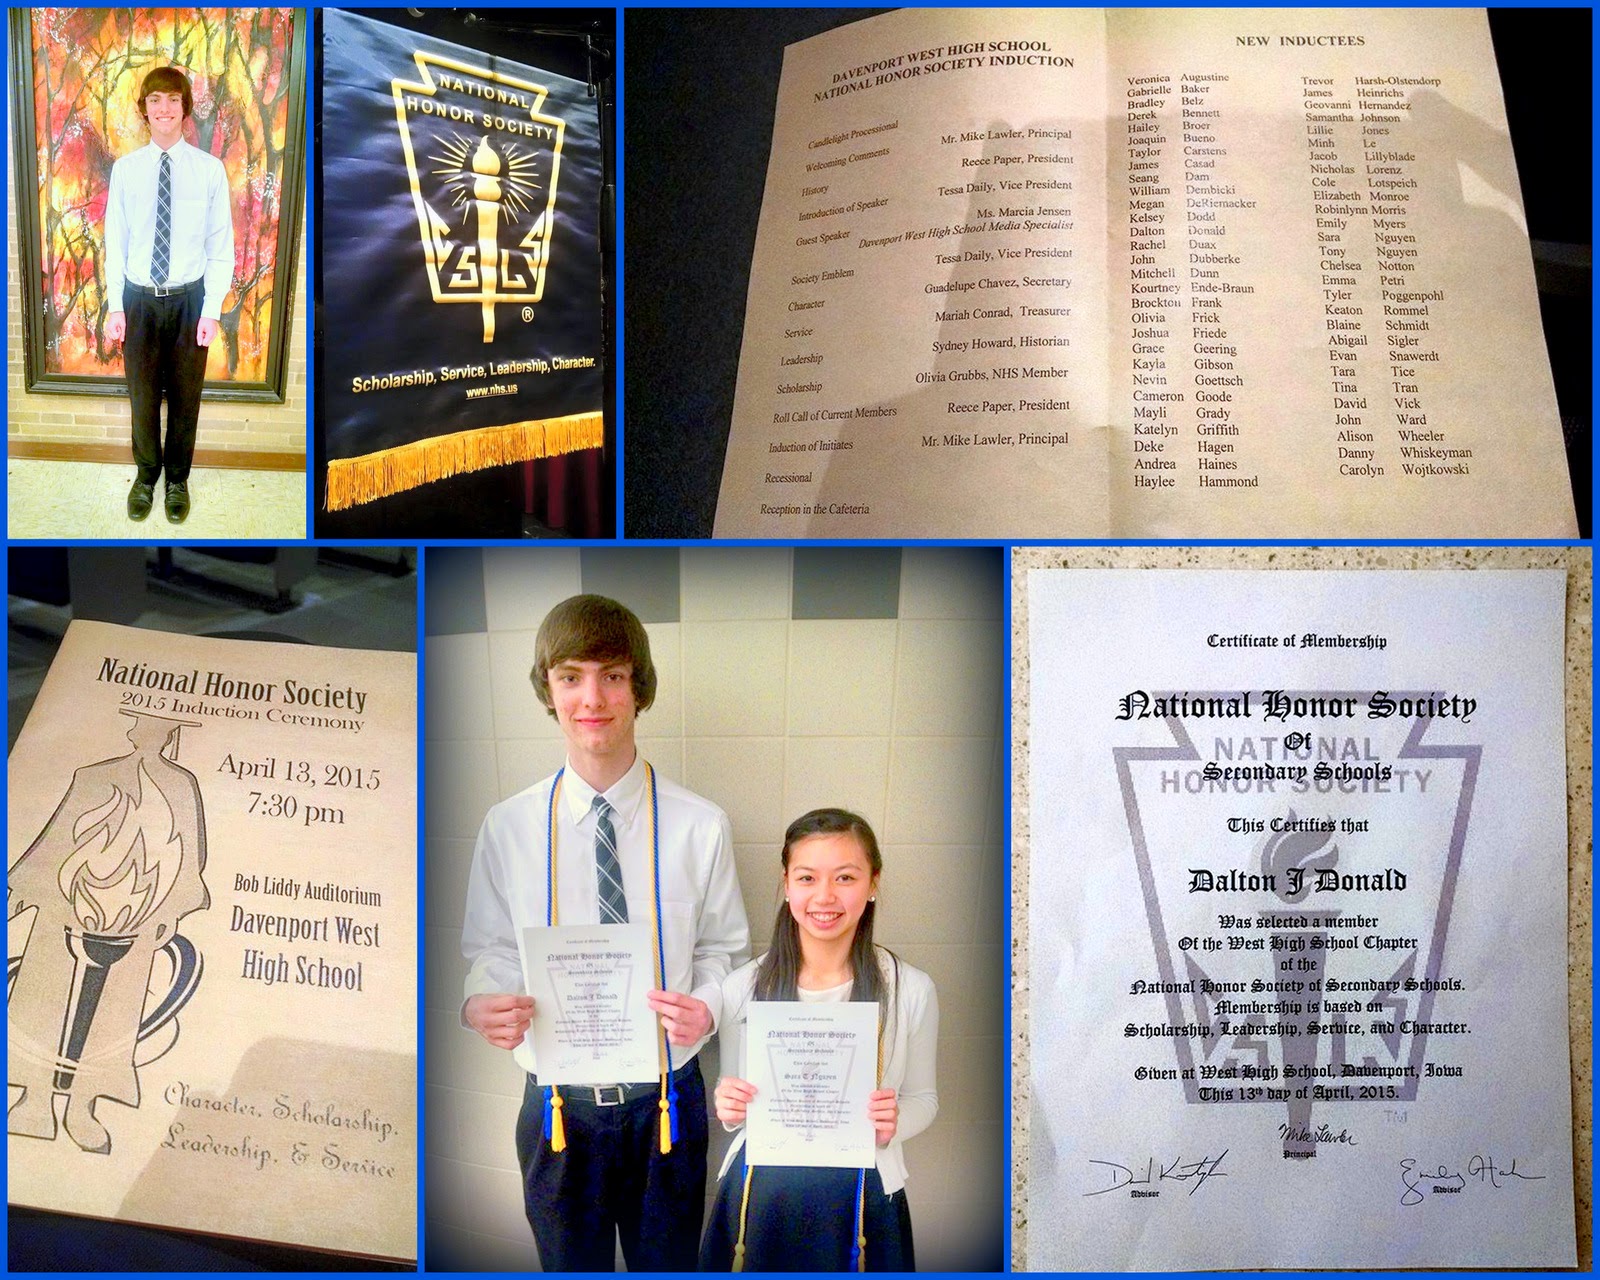 NATIONAL
HONOR SOCIETY
C S L S
®
Scholarship, Service, Leadership, Character.
www.nhs.us
DAVENPORT WEST HIGH SCHOOL
NATIONAL HONOR SOCIETY INDUCTION
Candlelight Processional
Welcoming Comments Mr. Mike Lawler, Principal
History Reece Paper, President
Introduction of Speaker Tessa Daily, Vice President
Guest Speaker Ms. Marcia Jensen
Davenport West High School Media Specialist
Society Emblem Tessa Daily, Vice President
Character Guadelupe Chavez, Secretary
Service Mariah Conrad, Treasurer
Leadership Sydney Howard, Historian
Scholarship Olivia Grubbs, NHS Member
Roll Call of Current Members Reece Paper, President
Induction of Initiates Mr. Mike Lawler, Principal
Recessional
Reception in the Cafeteria
NEW INDUCTEES
Veronica Augustine
Gabrielle Baker
Bradley Belz
Derek Bennett
Hailey Broer
Joaquin Bueno
Taylor Carstens
James Casad
Seang Dam
William Dembicki
Megan DeRiemacker
Kelsey Dodd
Dalton Donald
Rachel Duax
John Dubberke
Mitchell Dunn
Kourtney Ende-Braun
Brockton Frank
Olivia Frick
Joshua Friede
Grace Geering
Kayla Gibson
Nevin Goettsch
Cameron Goode
Mayli Grady
Katelyn Griffith
Deke Hagen
Andrea Haines
Haylee Hammond
Trevor Harsh-Olstendorp
James Heinrichs
Geovanni Hernandez
Samantha Johnson
Lillie Jones
Minh Le
Jacob Lillyblade
Nicholas Lorenz
Cole Lotspeich
Elizabeth Monroe
Robinlynn Morris
Emily Myers
Sara Nguyen
Tony Nguyen
Chelsea Notton
Emma Petri
Tyler Poggenpohl
Keaton Rommel
Blaine Schmidt
Abigail Sigler
Evan Snawerdt
Tara Tice
Tina Tran
David Vick
John Ward
Alison Wheeler
Danny Whiskeyman
Carolyn Wojtkowski
National Honor Society
2015 Induction Ceremony
April 13, 2015
7:30 pm
Bob Liddy Auditorium
Davenport West
High School
Character, Scholarship,
Leadership, & Service
Certificate of Membership
National Honor Society
Of
Secondary Schools
This Certifies that
Dalton J Donald
Certificate of Membership
National Honor Society
Of
Secondary Schools
This Certifies that
Sara T Nguyen
Certificate of Membership
National Honor Society
Of
Secondary Schools
NATIONAL
HONOR SOCIETY
This Certifies that
Dalton J Donald
Was selected a member
Of the West High School Chapter
of the
National Honor Society of Secondary Schools.
Membership is based on
Scholarship, Leadership, Service, and Character.
Given at West High School, Davenport, Iowa
This 13th day of April, 2015.
TM
Mike Lawler
Principal
Advisor
Advisor